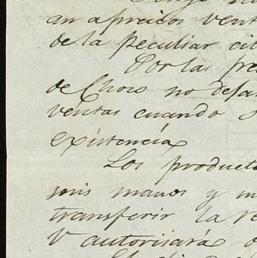 an aprecios vent
de la peculiar cit
Por las pre
de Choco no dejar
ventas cuando
existencia
Los producto
mis manos y m
transferir la re
V autorisará o